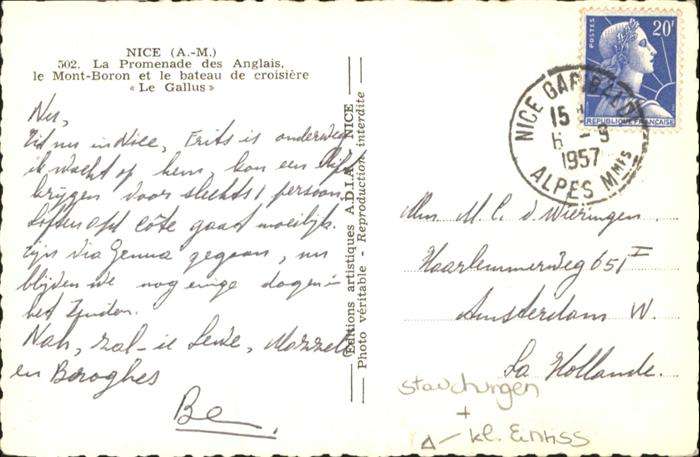 NICE (A.-M.)
502. La Promenade des Anglais,
le Mont-Boron et le bateau de croisière
« Le Gallus »
Zijn nu in Nice, Frits is onderweg
ik wacht op hem, kon een lift
krijgen voor slechts 1 persoon
Liften op de côte gaat moeilijk.
Zijn via Genua gegaan, nu
blijven we nog enige dagen in
het Zuiden.
en
Be
Editions artistiques A.D.I.A. NICE
Photo véritable - Reproduction interdite
POSTES
20F
REPUBLIQUE FRANÇAISE
NICE GARIBALDI
15
6 - 9
1957
ALPES MMES
M. C. v. Wieringen
Haarlemmerweg 651 I
Amsterdam W.
La Hollande.
Stauchungen
+
kl. Einriss